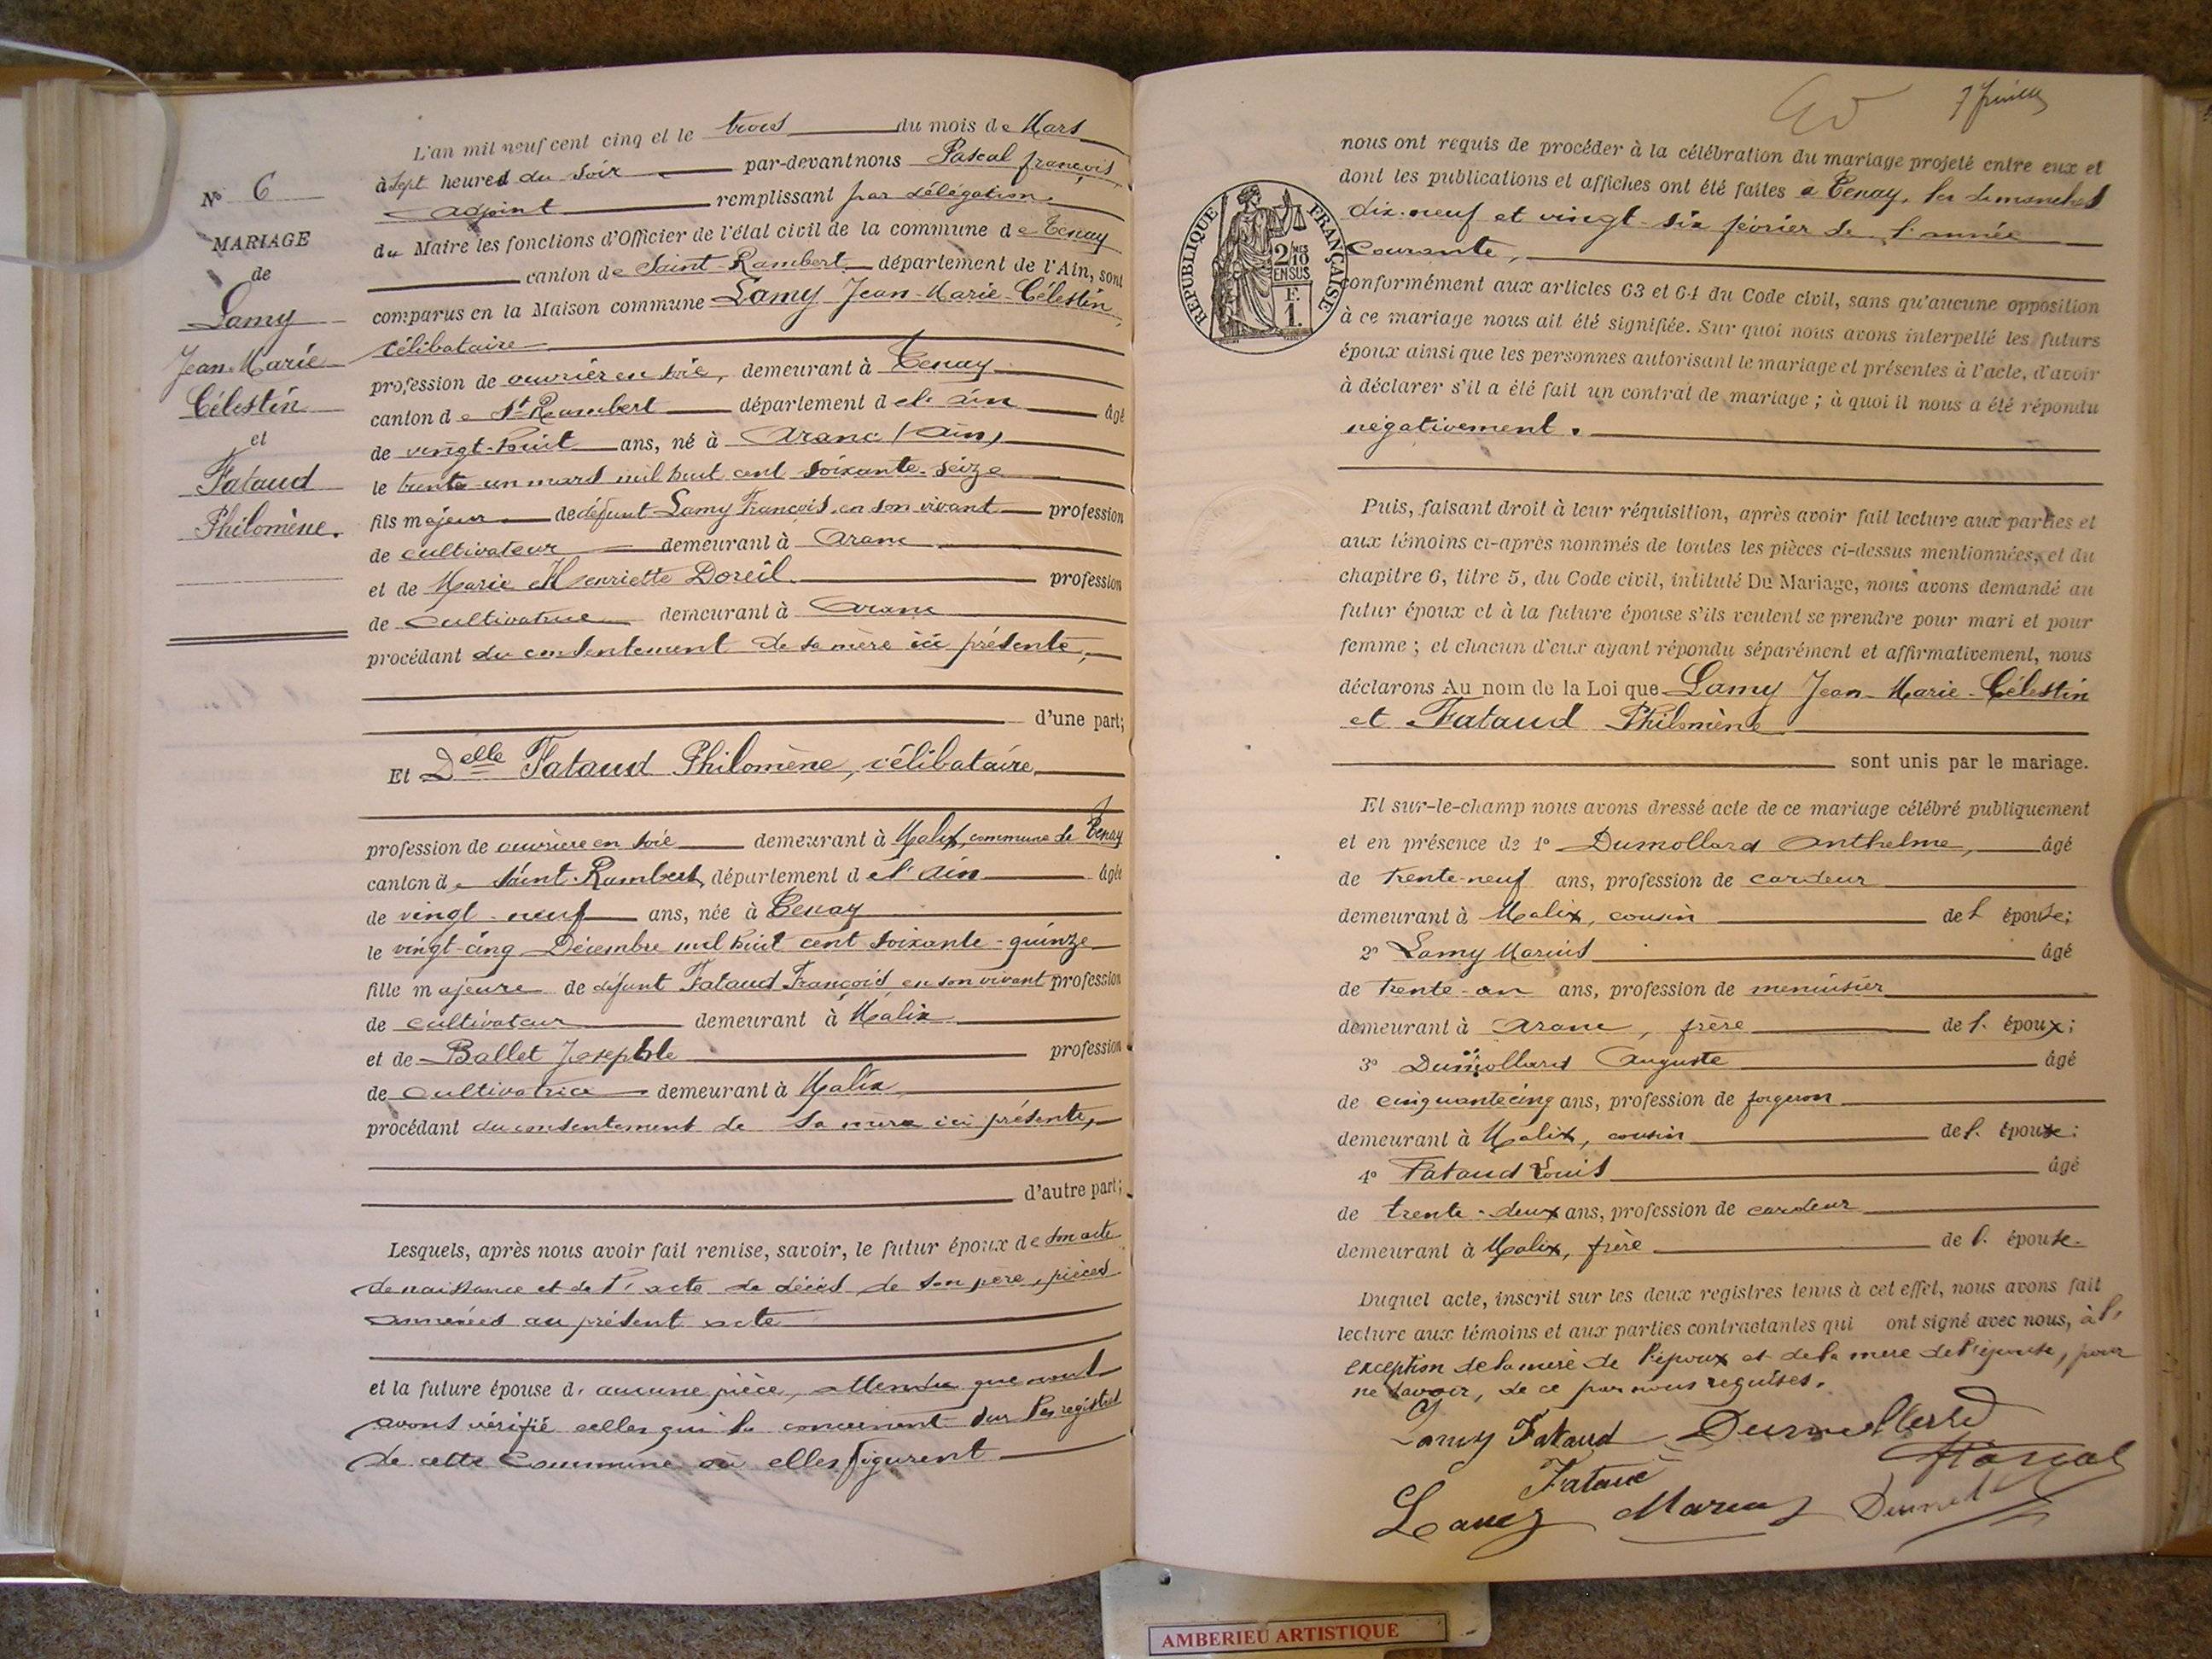 N° 6
MARIAGE
de
Lamy
Jean-Marie
Célestin
et
Fataud
Philomène.
L'an mil neuf cent cinq et le trois du mois de Mars
à Sept heures du Soir par-devant nous Pascal françois,
adjoint remplissant par délégation
du Maire les fonctions d'Officier de l'état civil de la commune de Tenay
canton de Saint-Rambert département de l'Ain, sont
comparus en la Maison commune Lamy Jean-Marie-Célestin,
célibataire
profession de ouvrier en soie, demeurant à Tenay
canton de St Rambert département de l'ain âgé
de vingt-huit ans, né à Aranc (Ain)
le trente-un mars mil huit cent soixante-seize
fils majeur de défunt Lamy François, en son vivant profession
de cultivateur demeurant à Aranc
et de Marie Henriette Doreil profession
de cultivatrice demeurant à Aranc
procédant du consentement de sa mère ici présente,
d'une part;
Et Delle Fataud Philomène, célibataire,
profession de ouvrière en soie demeurant à Malix, commune de Tenay
canton de Saint-Rambert, département de l'Ain âgée
de vingt-neuf ans, née à Tenay
le vingt-cinq Décembre mil huit cent soixante-quinze
fille majeure de défunt Fataud François, en son vivant profession
de cultivateur demeurant à Malix
et de Ballet Josephte profession
de cultivatrice demeurant à Malix
procédant du consentement de sa mère ici présente,
d'autre part;
Lesquels, après nous avoir fait remise, savoir, le futur époux de son acte
de naissance et de l'acte de décès de son père, pièces
annexées au présent acte
et la future épouse d'aucune pièce, attendu que nous
avons vérifié celles qui la concernent sur les registres
de cette Commune où elles figurent
7 feuille
RÉPUBLIQUE FRANÇAISE
2/10 MES
EN SUS
F.
1.
nous ont requis de procéder à la célébration du mariage projeté entre eux et
dont les publications et affiches ont été faites à Tenay, les dimanches
dix-neuf et vingt-six février de l'année
Courante,
conformément aux articles 63 et 64 du Code civil, sans qu'aucune opposition
à ce mariage nous ait été signifiée. Sur quoi nous avons interpellé les futurs
époux ainsi que les personnes autorisant le mariage et présentes à l'acte, d'avoir
à déclarer s'il a été fait un contrat de mariage; à quoi il nous a été répondu
négativement.
Puis, faisant droit à leur réquisition, après avoir fait lecture aux parties et
aux témoins ci-après nommés de toutes les pièces ci-dessus mentionnées, et du
chapitre 6, titre 5, du Code civil, intitulé Du Mariage, nous avons demandé au
futur époux et à la future épouse s'ils veulent se prendre pour mari et pour
femme; et chacun d'eux ayant répondu séparément et affirmativement, nous
déclarons Au nom de la Loi que Lamy Jean-Marie-Célestin
et Fataud Philomène
sont unis par le mariage.
Et sur-le-champ nous avons dressé acte de ce mariage célébré publiquement
et en présence de 1° Dumollard Anthelme, âgé
de trente-neuf ans, profession de cardeur
demeurant à Malix, cousin de l'épouse;
2° Lamy Marius âgé
de trente-un ans, profession de menuisier
demeurant à Aranc, frère de l'époux;
3° Dumollard Auguste âgé
de cinquante cinq ans, profession de forgeron
demeurant à Malix, cousin de l'épouse;
4° Fataud Louis âgé
de trente-deux ans, profession de cardeur
demeurant à Malix, frère de l'épouse.
Duquel acte, inscrit sur les deux registres tenus à cet effet, nous avons fait
lecture aux témoins et aux parties contractantes qui ont signé avec nous, à l'
exception de la mère de l'époux et de la mère de l'épouse, pour
ne savoir, de ce par nous requises.
Lamy Fataud Dumollard
Fataud Pascal
Lamy Marius
AMBERIEU ARTISTIQUE